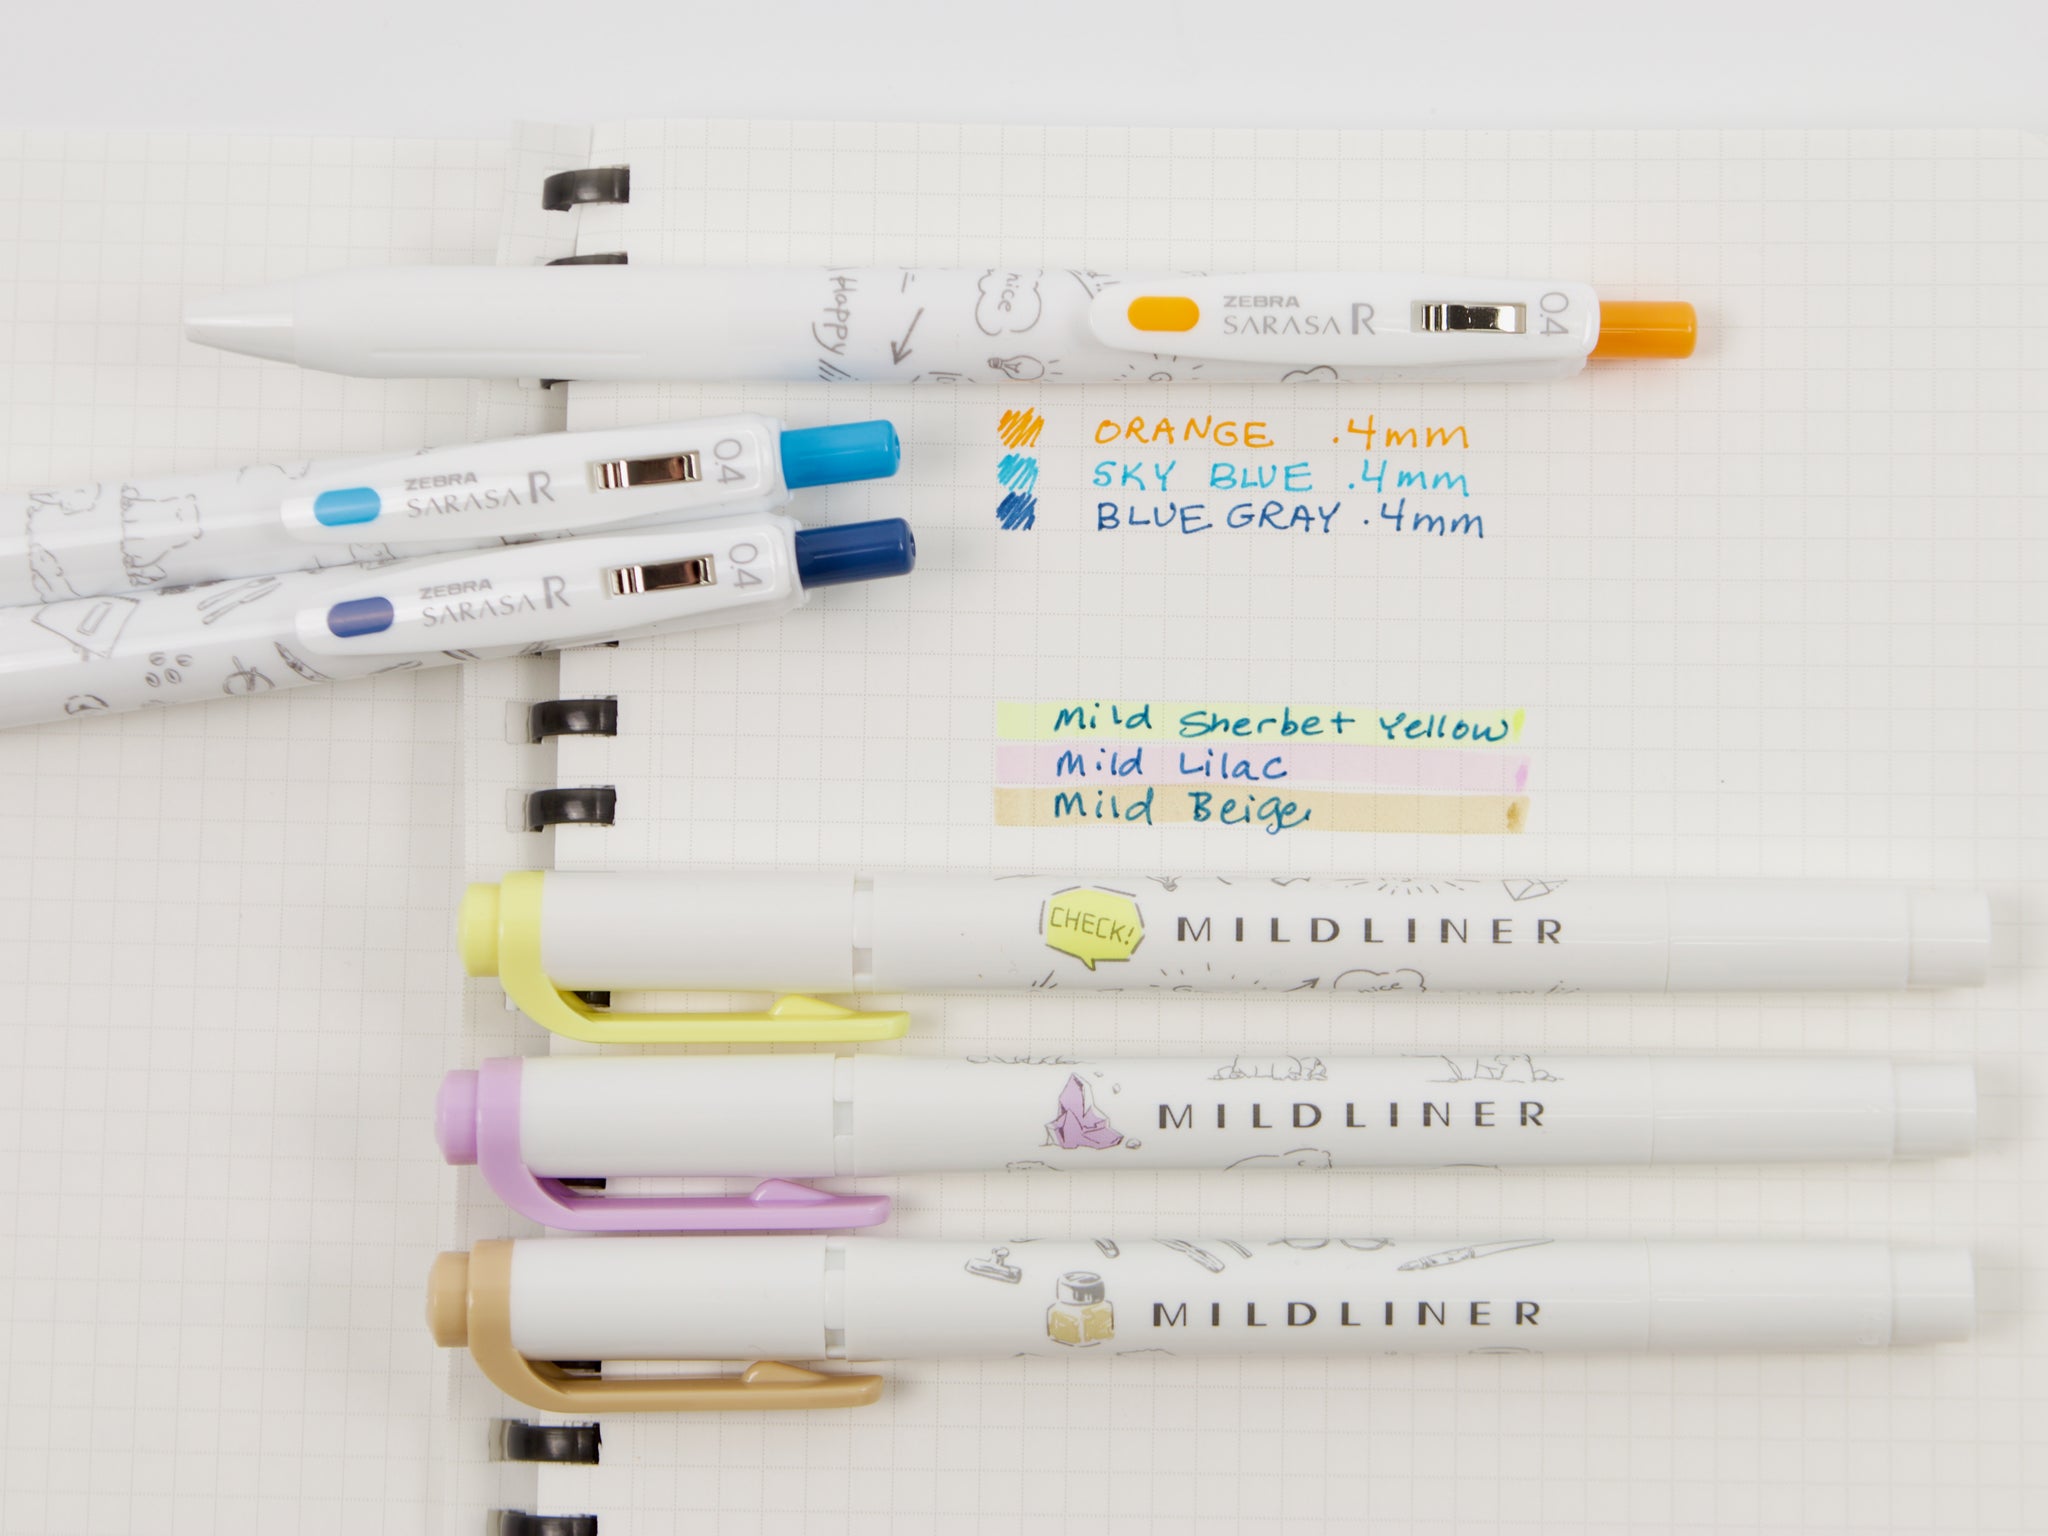 Happy
nice
ZEBRA
SARASA R
0.4
ORANGE .4mm
SKY BLUE .4mm
BLUE GRAY .4mm
ZEBRA
SARASA R
0.4
ZEBRA
SARASA R
0.4
Mild Sherbet Yellow
Mild Lilac
Mild Beige
CHECK!
MILDLINER
nice
MILDLINER
MILDLINER